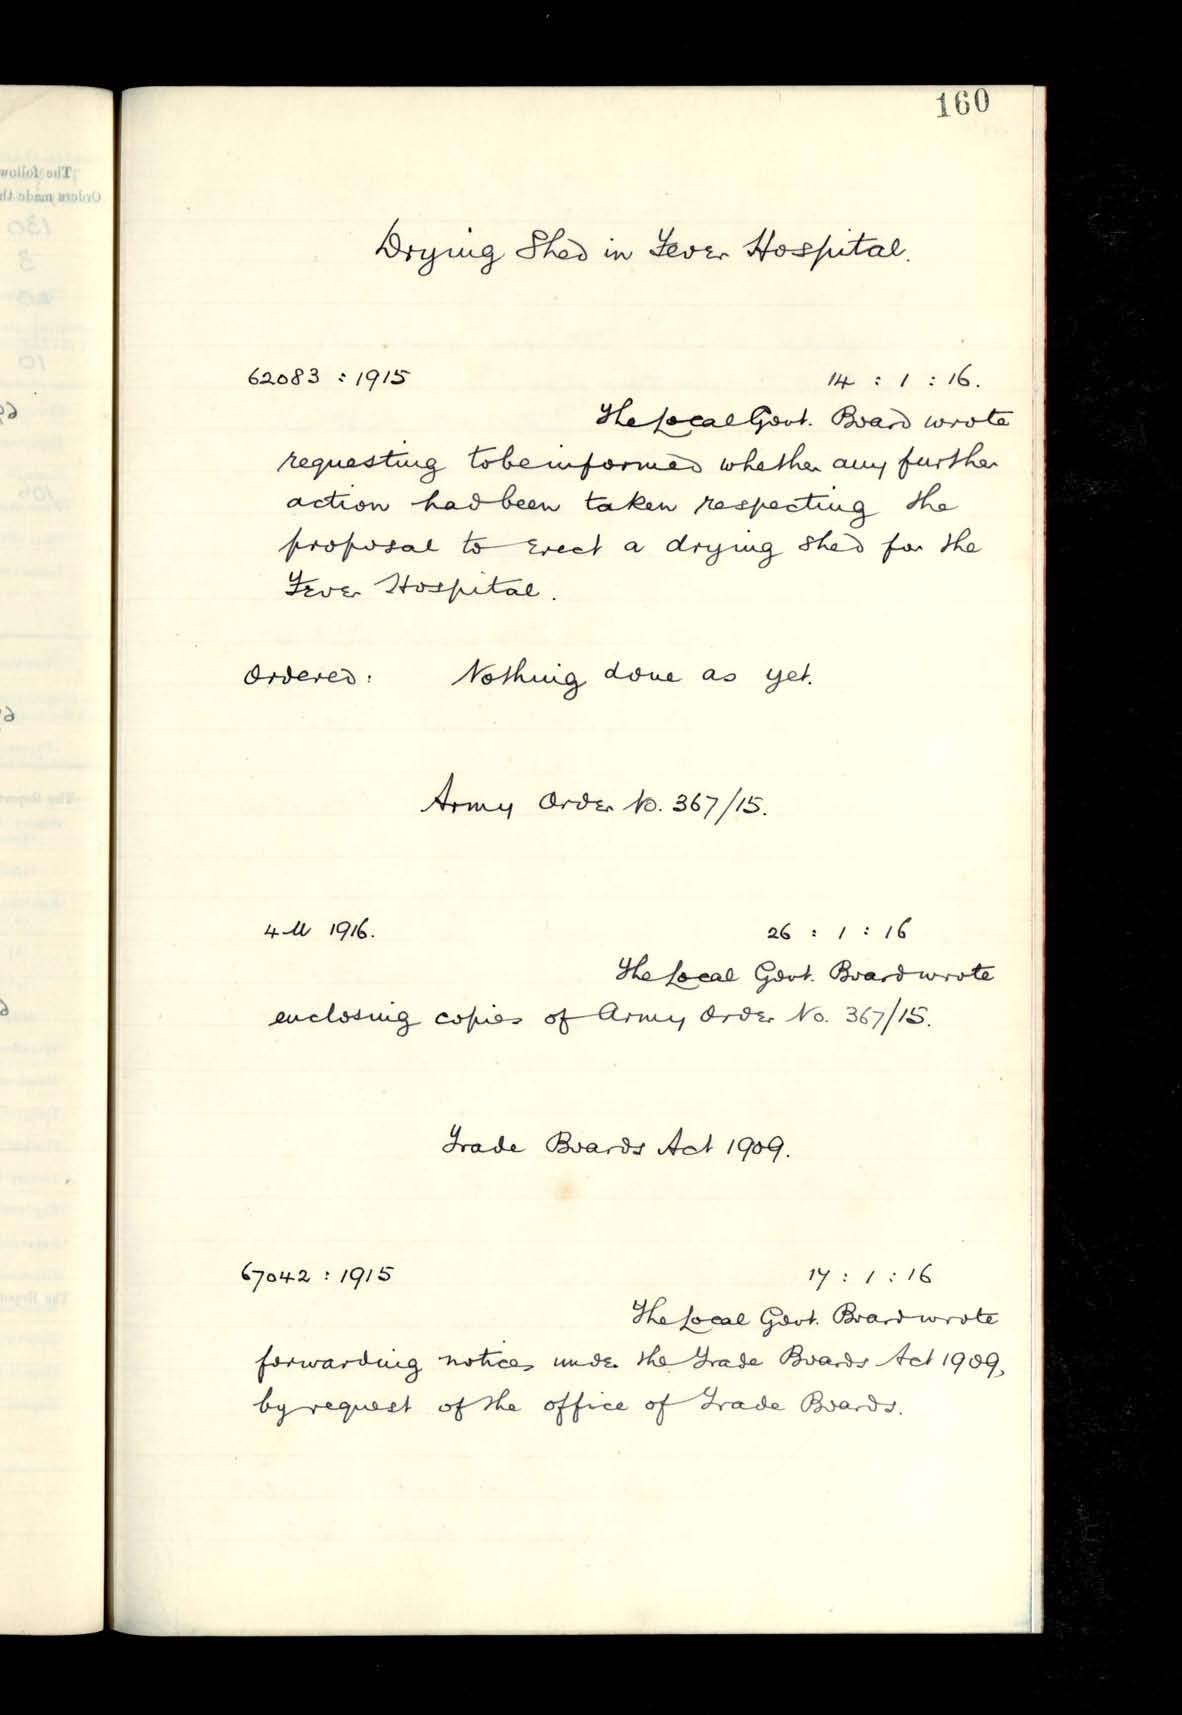 160
Drying Shed in Fever Hospital.
62083 : 1915 14 : 1 : 16.
The Local Govt. Board wrote
requesting to be informed whether any further
action had been taken respecting the
proposal to erect a drying shed for the
Fever Hospital.
Ordered: Nothing done as yet.
Army Order No. 367/15.
4 M 1916. 26 : 1 : 16
The Local Govt. Board wrote
enclosing copies of Army Order No. 367/15.
Trade Boards Act 1909.
67042 : 1915 17 : 1 : 16
The Local Govt. Board wrote
forwarding notices under the Trade Boards Act 1909,
by request of the office of Trade Boards.